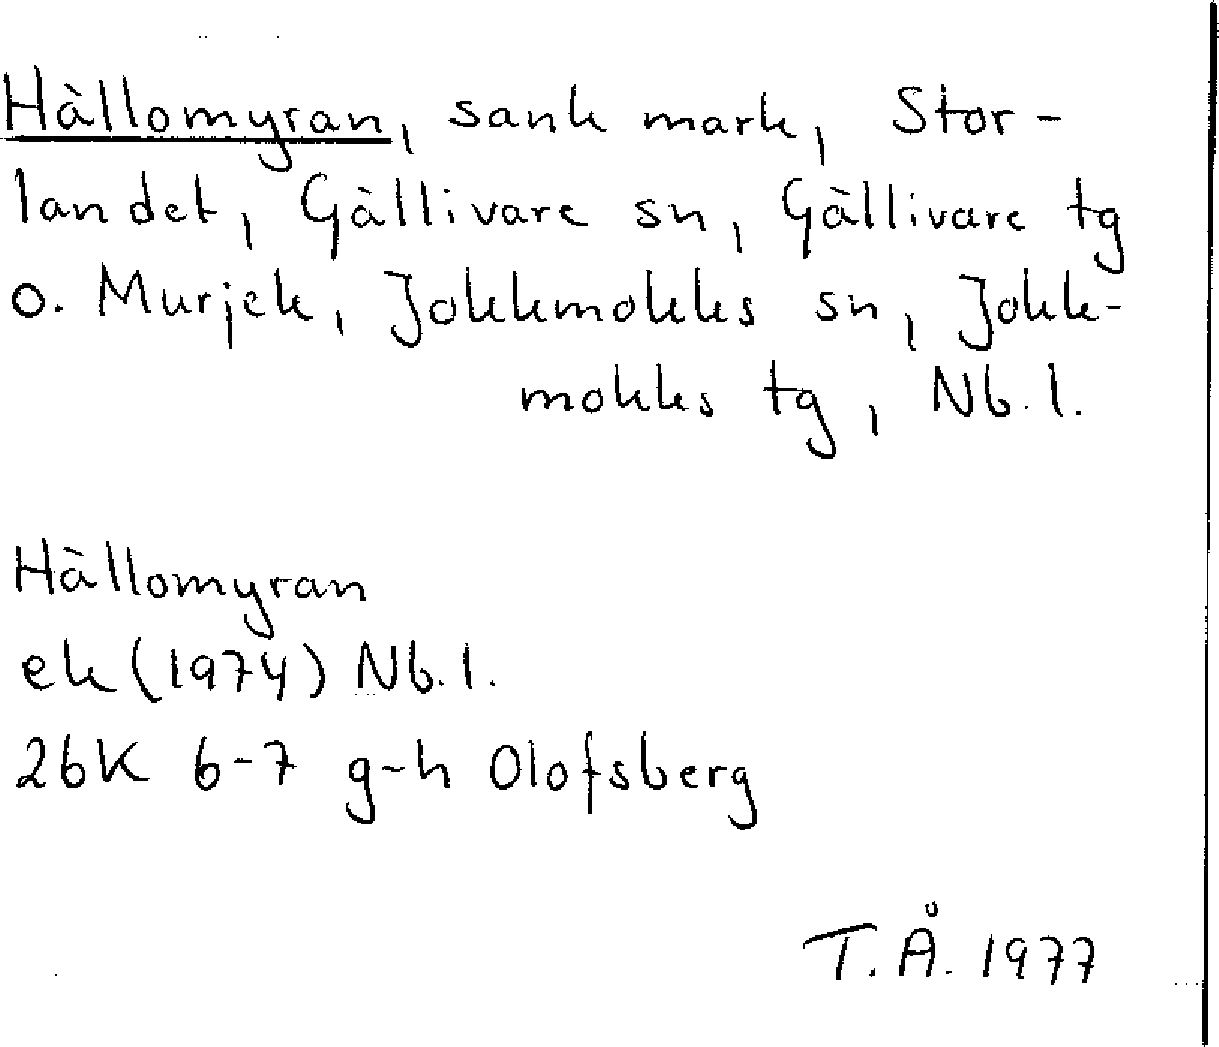 Hällomyran, sank mark, Stor-
landet, Gällivare sn, Gällivare tg
o. Murjek, Jokkmokks sn, Jokk-
mokks tg, Nb.l.
Hällomyran
ek (1974) Nb.l.
26K 6-7 g-h Olofsberg
T.Å. 1977